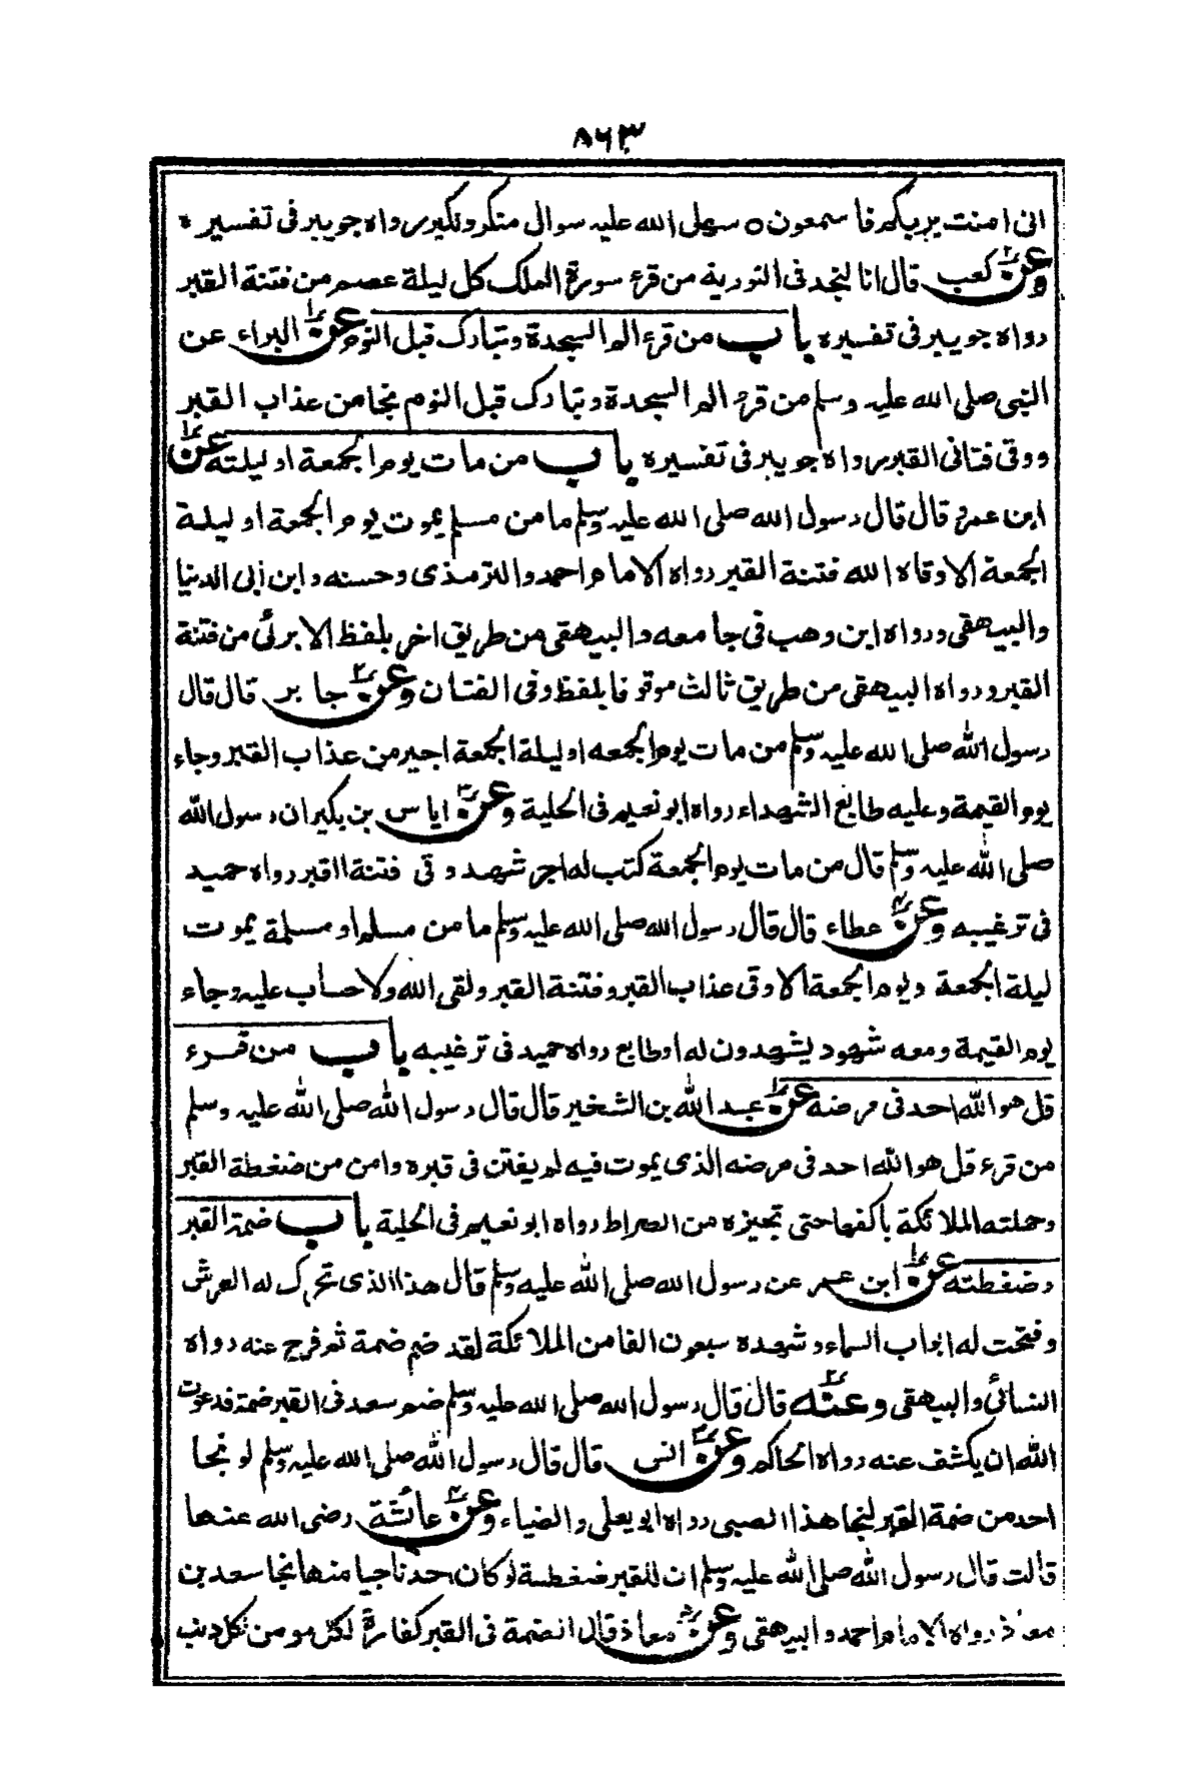 ٨٦٣
انی امنت بربکم فاسمعون ٥ سھل الله علیہ سوال منکر ونکیر رواہ جویبر فی تفسیرہ
وعن کعب قال انا لنجد فی التوریة من قرء سورة الملک کل لیلة عصم من فتنة القبر
رواہ جویبر فی تفسیرہ باب من قرء الم السجدة وتبارک قبل النوم عن البراء عن
النبی صلی الله علیہ وسلم من قرء الم السجدة وتبارک قبل النوم نجا من عذاب القبر
ووقی فتانی القبر رواہ جویبر فی تفسیرہ باب من مات یوم الجمعة او لیلتہ عن
ابن عمرو قال قال رسول الله صلی الله علیہ وسلم ما من مسلم یموت یوم الجمعة او لیلة
الجمعة الا وقاہ الله فتنة القبر رواہ الامام احمد والترمذی وحسنہ وابن ابی الدنیا
والبیھقی ورواہ ابن وھب فی جامعہ والبیھقی من طریق اخر بلفظ الا برئی من فتنة
القبر ورواہ البیھقی من طریق ثالث موقوفا بلفظ وقی الفتان وعن جابر قال قال
رسول الله صلی الله علیہ وسلم من مات یوم الجمعہ او لیلة الجمعة اجیر من عذاب القبر وجاء
یوم القیمة وعلیہ طابع الشھداء رواہ ابو نعیم فی الحلیة وعن ایاس بن بکیر ان رسول الله
صلی الله علیہ وسلم قال من مات یوم الجمعة کتب لہ اجر شھید ووقی فتنة القبر رواہ حمید
فی ترغیبہ وعن عطاء قال قال رسول الله صلی الله علیہ وسلم ما من مسلم او مسلمة یموت
لیلة الجمعة ویوم الجمعة الا وقی عذاب القبر وفتنة القبر ولقی الله ولا حساب علیہ وجاء
یوم القیمة ومعہ شھود یشھدون لہ او طابع رواہ حمید فی ترغیبہ باب من قرء
قل ھو الله احد فی مرضہ عن عبد الله بن الشخیر قال قال رسول الله صلی الله علیہ وسلم
من قرء قل ھو الله احد فی مرضہ الذی یموت فیہ لم یفتن فی قبرہ وامن من ضغطة القبر
وحملتہ الملائکة باکفھا حتی تجیزہ من الصراط رواہ ابو نعیم فی الحلیة باب ضمة القبر
وضغطتہ عن ابن عمر عن رسول الله صلی الله علیہ وسلم قال ھذا الذی تحرک لہ العرش
وفتحت لہ ابواب السماء وشھدہ سبعون الفا من الملائکة لقد ضم ضمة ثم فرج عنہ رواہ
النسائی والبیھقی وعنہ قال قال رسول الله صلی الله علیہ وسلم ضم سعد فی القبر ضمة فدعوت
الله ان یکشف عنہ رواہ الحاکم وعن انس قال قال رسول الله صلی الله علیہ وسلم لو نجا
احد من ضمة القبر لنجا ھذا الصبی رواہ ابو یعلی والضیاء وعن عائشة رضی الله عنھا
قالت قال رسول الله صلی الله علیہ وسلم ان للقبر ضغطة لو کان احد ناجیا منھا نجا سعد بن
معاذ رواہ الامام احمد والبیھقی وعن معاذ قال انضمة فی القبر کفارة لکل مومن لکل ذنب